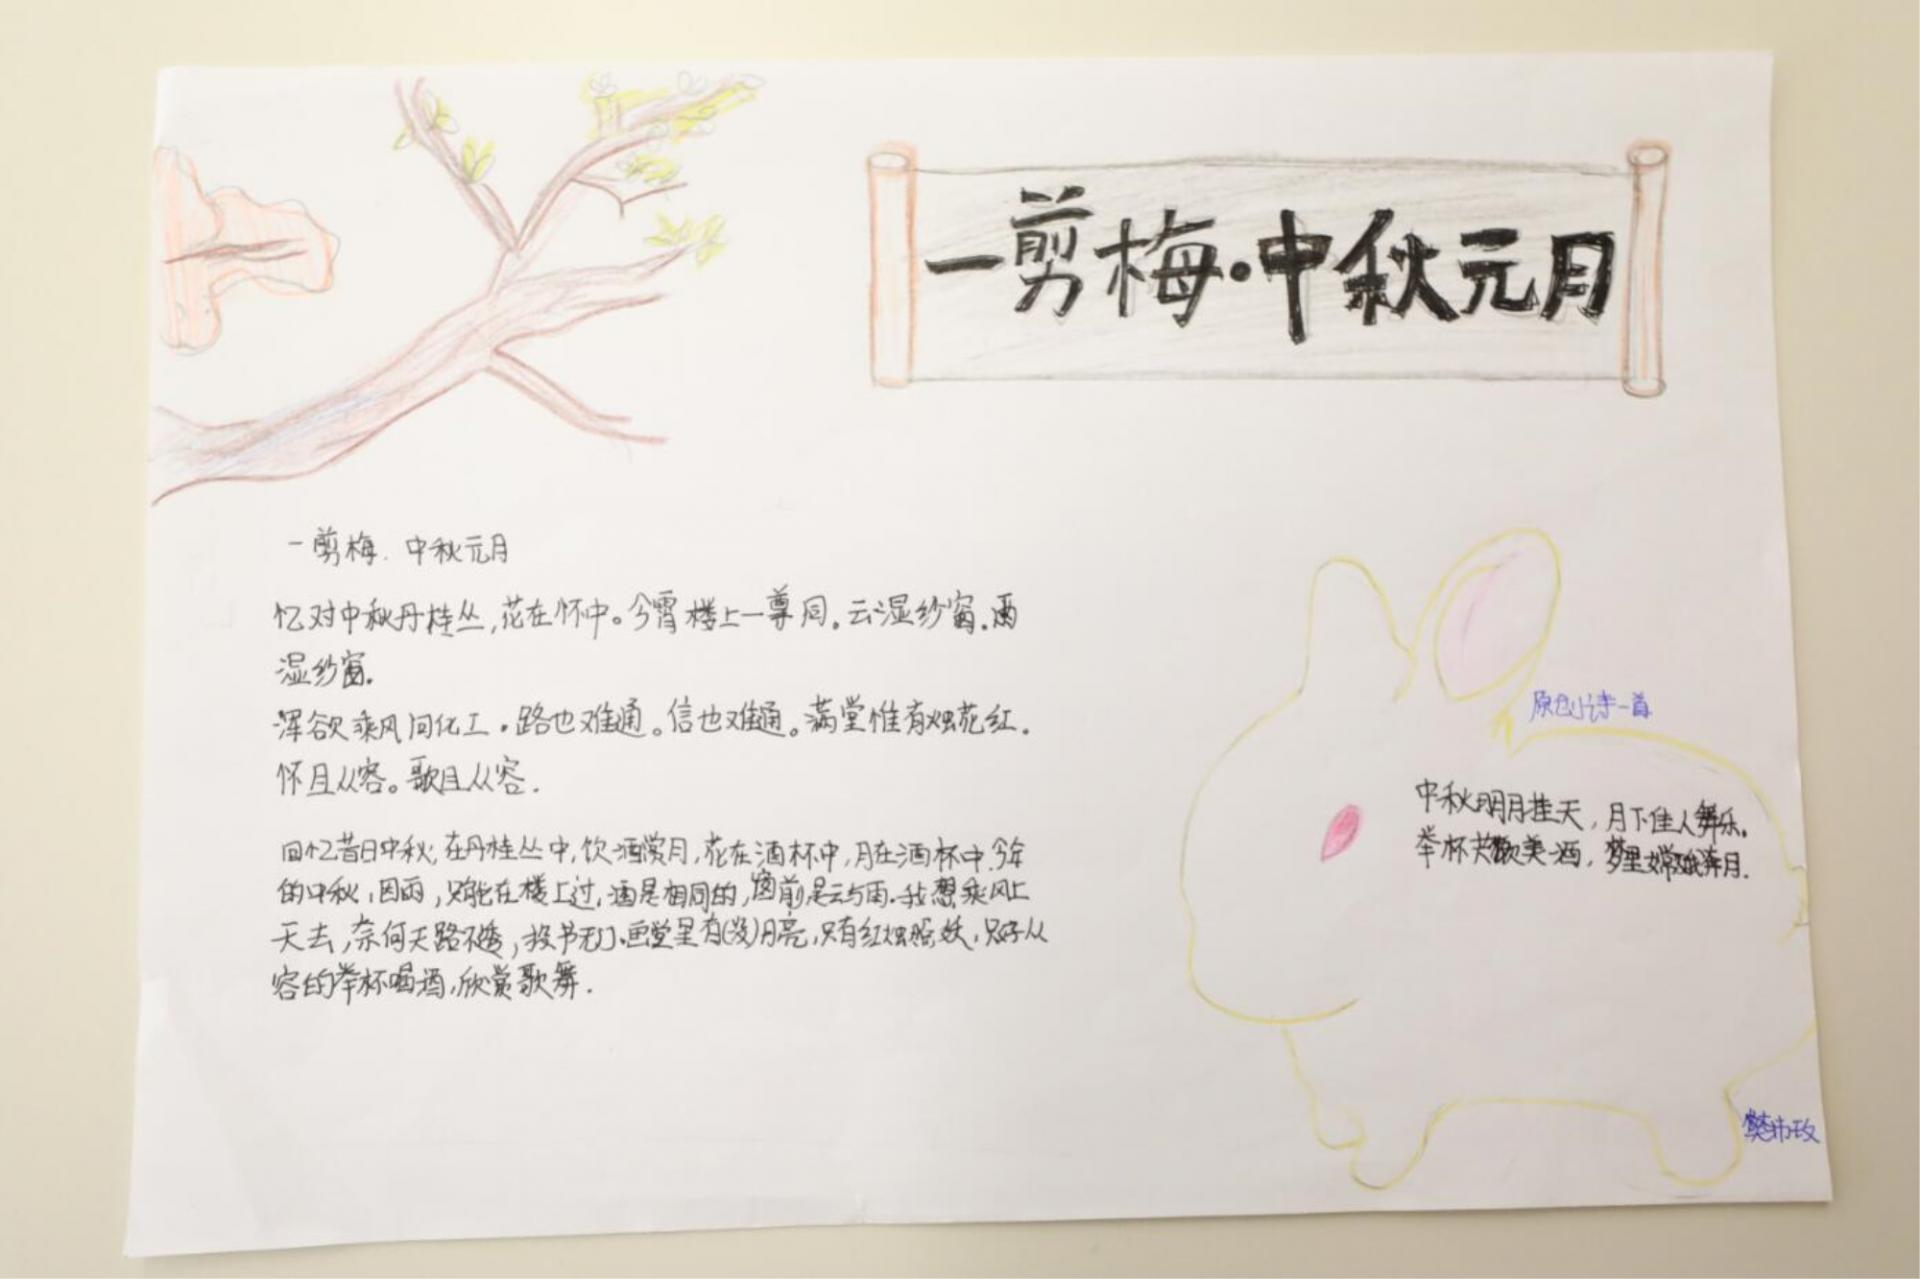 一剪梅·中秋元月
一剪梅.中秋元月
忆对中秋丹桂丛,花在怀中。今宵楼上一尊同.云湿纱窗.雨
湿纱窗.
浑欲乘风问化工.路也难通。信也难通。满堂惟有烛花红.
怀且从容。歌且从容.
回忆昔日中秋,在丹桂丛中,饮酒赏月,花在酒杯中,月在酒杯中.今年
的中秋,因雨,只能在楼上过,酒是相同的,窗前是云与雨.我想乘风上
天去,奈何天路不透,投书无门.画堂里有(没)月亮,只有红烛照妖,只好从
容的举杯喝酒,欣赏歌舞.
原创小诗一首
中秋明月挂天,月下佳人舞乐.
举杯共飲美酒,梦里嫦娥奔月.